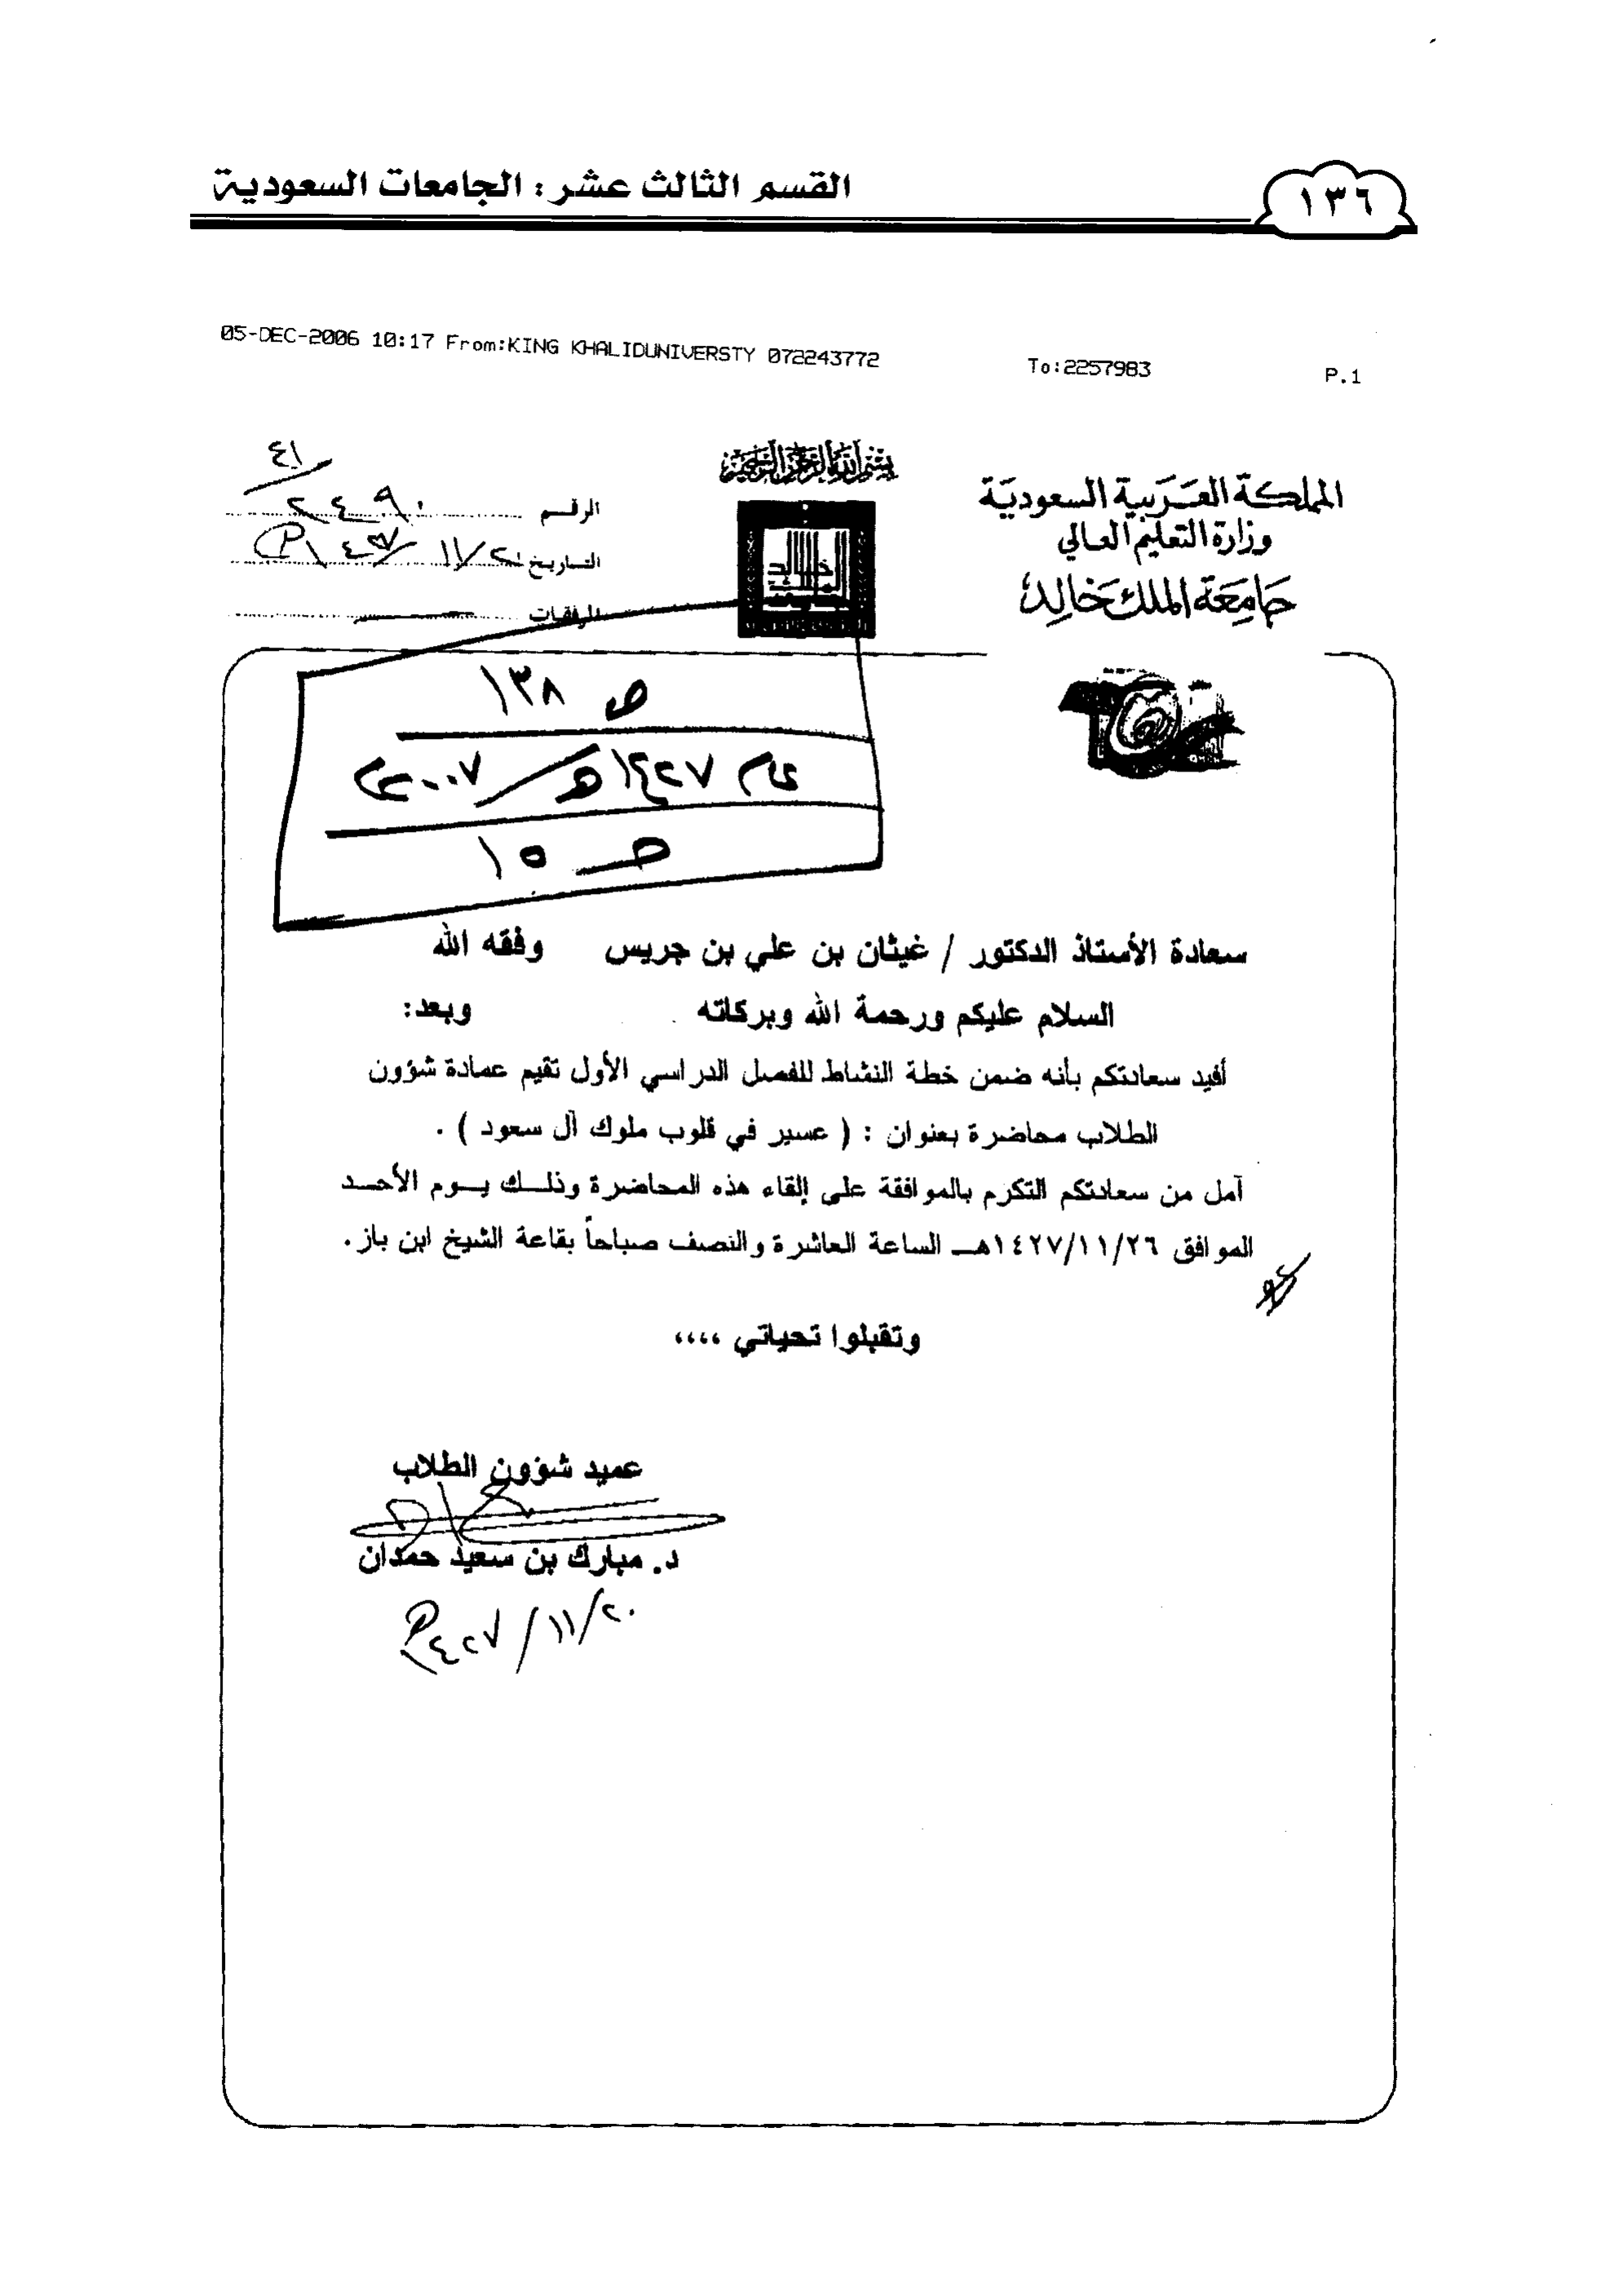 ١٣٦
القسم الثالث عشر : الجامعات السعودية
05-DEC-2006 10:17 From:KING KHALIDUNIVERSTY 072243772 To:2257983 P.1
بسم الله الرحمن الرحيم
المملكة العربية السعودية
وزارة التعليم العالي
جامعة الملك خالد
٤١/
الرقم ٢٤٩٠
التاريخ
المرفقات
ص ١٣٨
عام ١٤٢٧هـ/٢٠٠٧م
صـ ١٥
سعادة الأستاذ الدكتور / غيثان بن علي بن جريس وفقه الله
السلام عليكم ورحمة الله وبركاته وبعد:
أفيد سعادتكم بأنه ضمن خطة النشاط للفصل الدراسي الأول تقيم عمادة شؤون
الطلاب محاضرة بعنوان : ( عسير في قلوب ملوك آل سعود ) .
آمل من سعادتكم التكرم بالموافقة على إلقاء هذه المحاضرة وذلــك يــوم الأحــد
الموافق ١٤٢٧/١١/٢٦هــ الساعة العاشرة والنصف صباحاً بقاعة الشيخ ابن باز .
وتقبلوا تحياتي ،،،،
عميد شؤون الطلاب
د. مبارك بن سعيد حمدان
٢٠/١١/١٤٢٧هـ